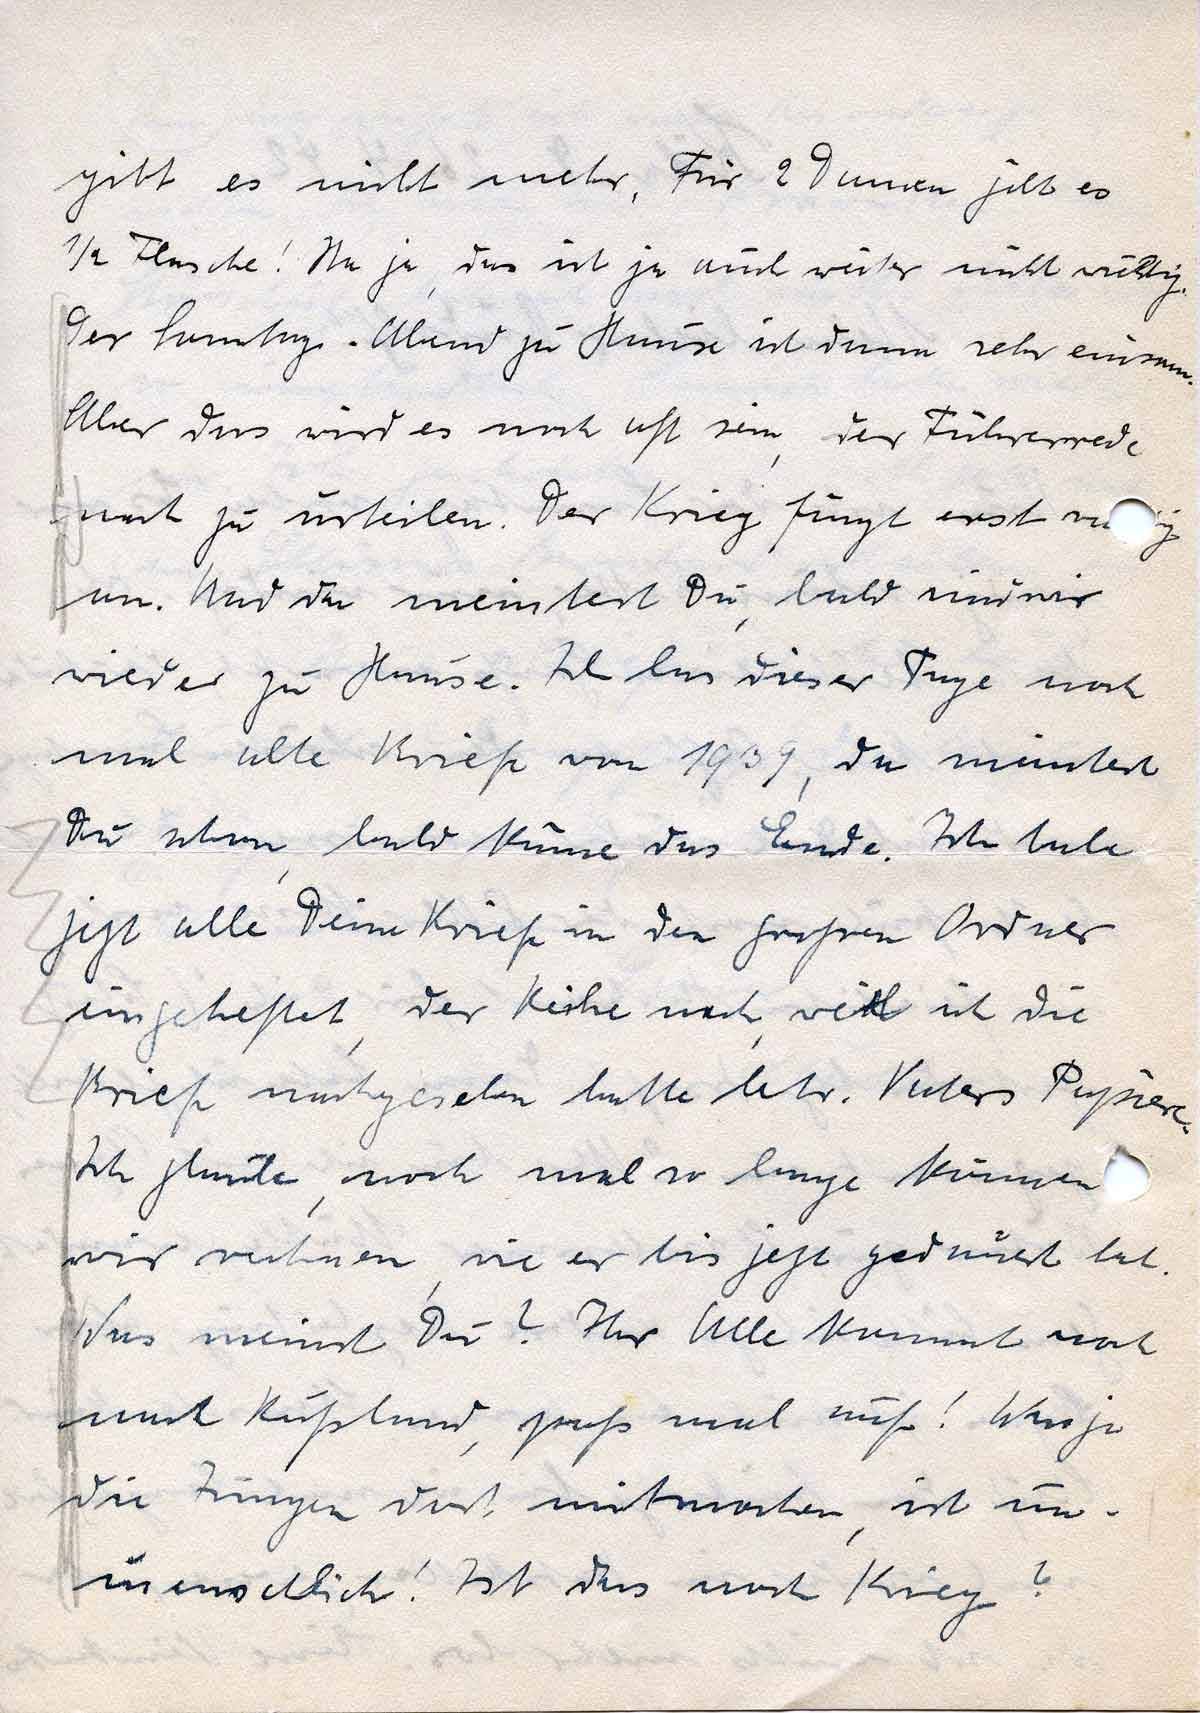 gibt es nicht mehr. Für 2 Damen gibt es
1/2 Flasche! Na ja, das ist ja auch weiter nicht wichtig.
Der Sonntag-Abend zu Hause ist dann sehr einsam.
Aber das wird es noch oft sein, der Führerrede
nach zu urteilen. Der Krieg fängt erst richtig
an. Und da meintest Du, bald sind wir
wieder zu Hause. Ich las dieser Tage noch
mal alte Briefe von 1939, da meintest
Du schon, bald käme das Ende. Ich habe
jetzt alle Deine Briefe in den großen Ordner
eingeheftet, der Reihe nach, weil ich die
Briefe nachgesehen hatte betr. Vaters Papiere.
Ich glaube, noch mal so lange können
wir rechnen, wie er bis jetzt gedauert hat.
Was meinst Du? Ihr Alle kommt noch
nach Rußland, pass mal auf! Was ja
die Jungen dort mitmachen, ist un-
menschlich! Ist das noch Krieg?